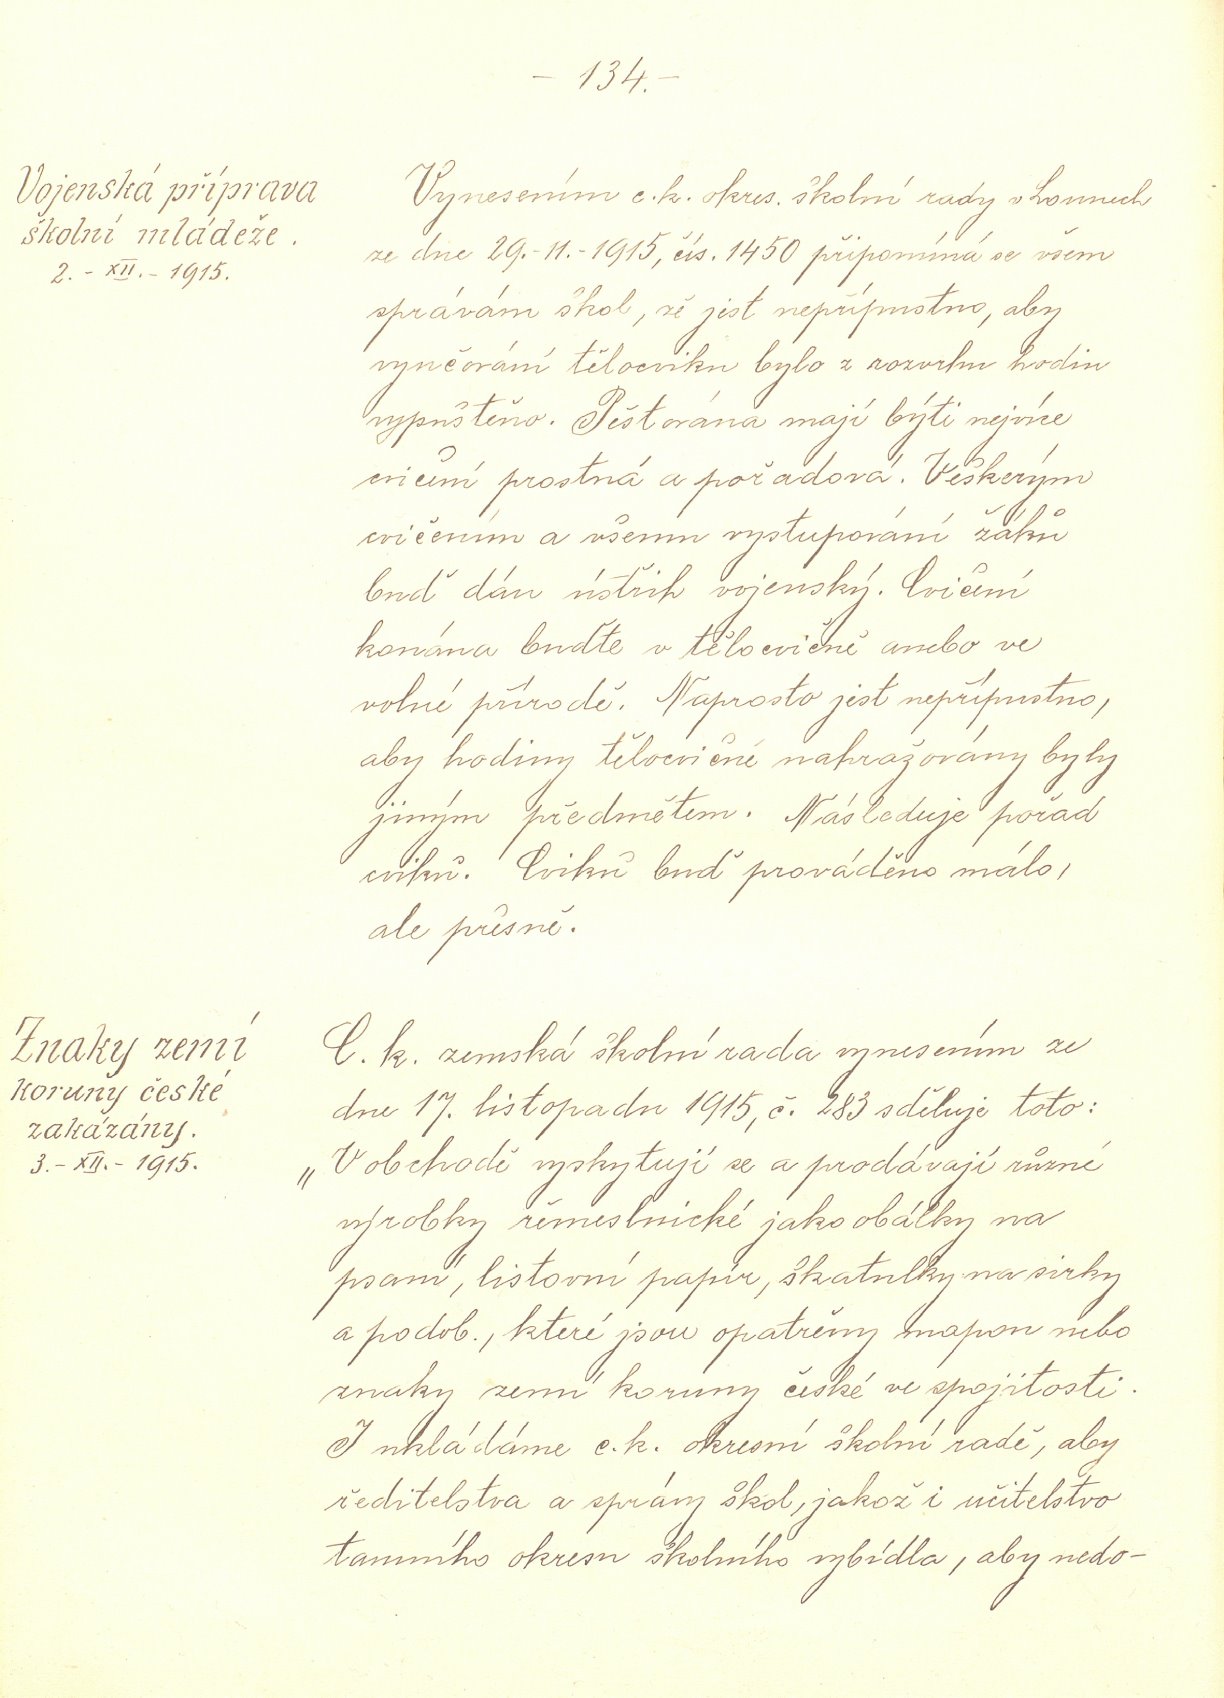 – 134. –
Vojenská příprava
školní mládeže.
2. - XII. - 1915.
Vynesením c. k. okres. školní rady v Lounech
ze dne 29. - 11. - 1915, čís. 1450 připomíná se všem
správám škol, že jest nepřípustno, aby
vyučování tělocviku bylo z rozvrhu hodin
vypuštěno. Pěstována mají býti nejvíce
cvičení prostná a pořadová. Veškerým
cvičením a všemu vystupování žáků
buď dán ústřih vojenský. Cvičení
konána buďte v tělocvičně anebo ve
volné přírodě. Naprosto jest nepřípustno,
aby hodiny tělocvičné nahražovány byly
jiným předmětem. Následuje pořad
cviků. Cviků buď prováděno málo,
ale přesně.
Znaky zemí
koruny české
zakázány.
3. - XII. - 1915.
C. k. zemská školní rada vynesením ze
dne 17. listopadu 1915, č. 283 sděluje toto:
„V obchodě vyskytují se a prodávají různé
výrobky řemeslnické jako obálky na
psaní, listovní papír, škatulky na sirky
a podob., které jsou opatřeny mapou nebo
znaky zemí koruny české ve spojitosti.
I ukládáme c. k. okresní školní radě, aby
ředitelstva a správy škol, jakož i učitelstvo
tamního okresu školního vybídla, aby nedo-